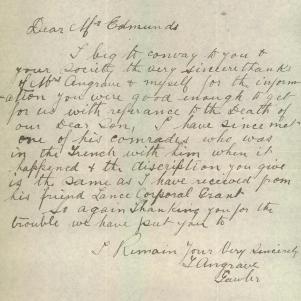 Dear Mrs Edmunds
I beg to convay to you &
your Society the very sincere thanks
of Mrs Angrave & myself for the inform
-ation you were good enough to get
for us with referance to the Death of
our Dear Son, I have since met
one of his comrades who was
in the Trench with him when it
happened & the discription you give
is the same as I have received from
his friend Lance Corporal Grant
So again Thanking you for the
trouble we have put you to
I Remain Your Very Sincerely
T Angrave
Gawler